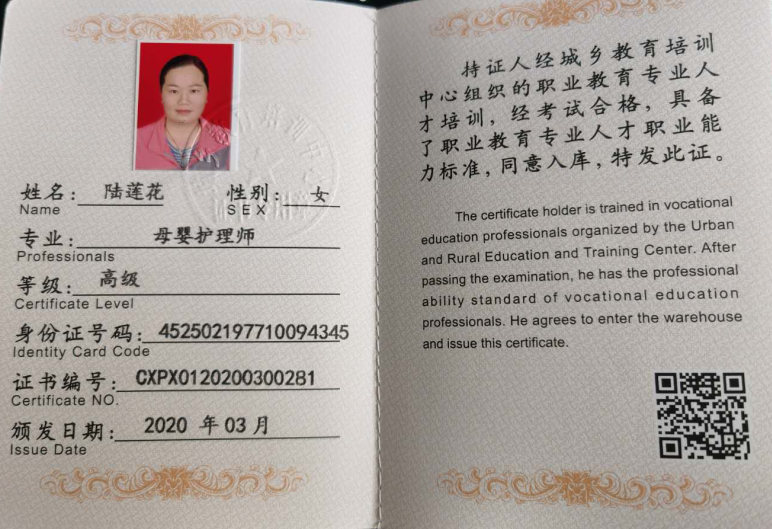 姓名: 陆莲花 性别: 女
Name SEX
专业: 母婴护理师
Professionals
等级: 高级
Certificate Level
身份证号码: 452502197710094345
Identity Card Code
证书编号: CXPX0120200300281
Certificate NO.
颁发日期: 2020 年 03 月
Issue Date
持证人经城乡教育培训
中心组织的职业教育专业人
才培训，经考试合格，具备
了职业教育专业人才职业能
力标准，同意入库，特发此证。
The certificate holder is trained in vocational
education professionals organized by the Urban
and Rural Education and Training Center. After
passing the examination, he has the professional
ability standard of vocational education
professionals. He agrees to enter the warehouse
and issue this certificate.